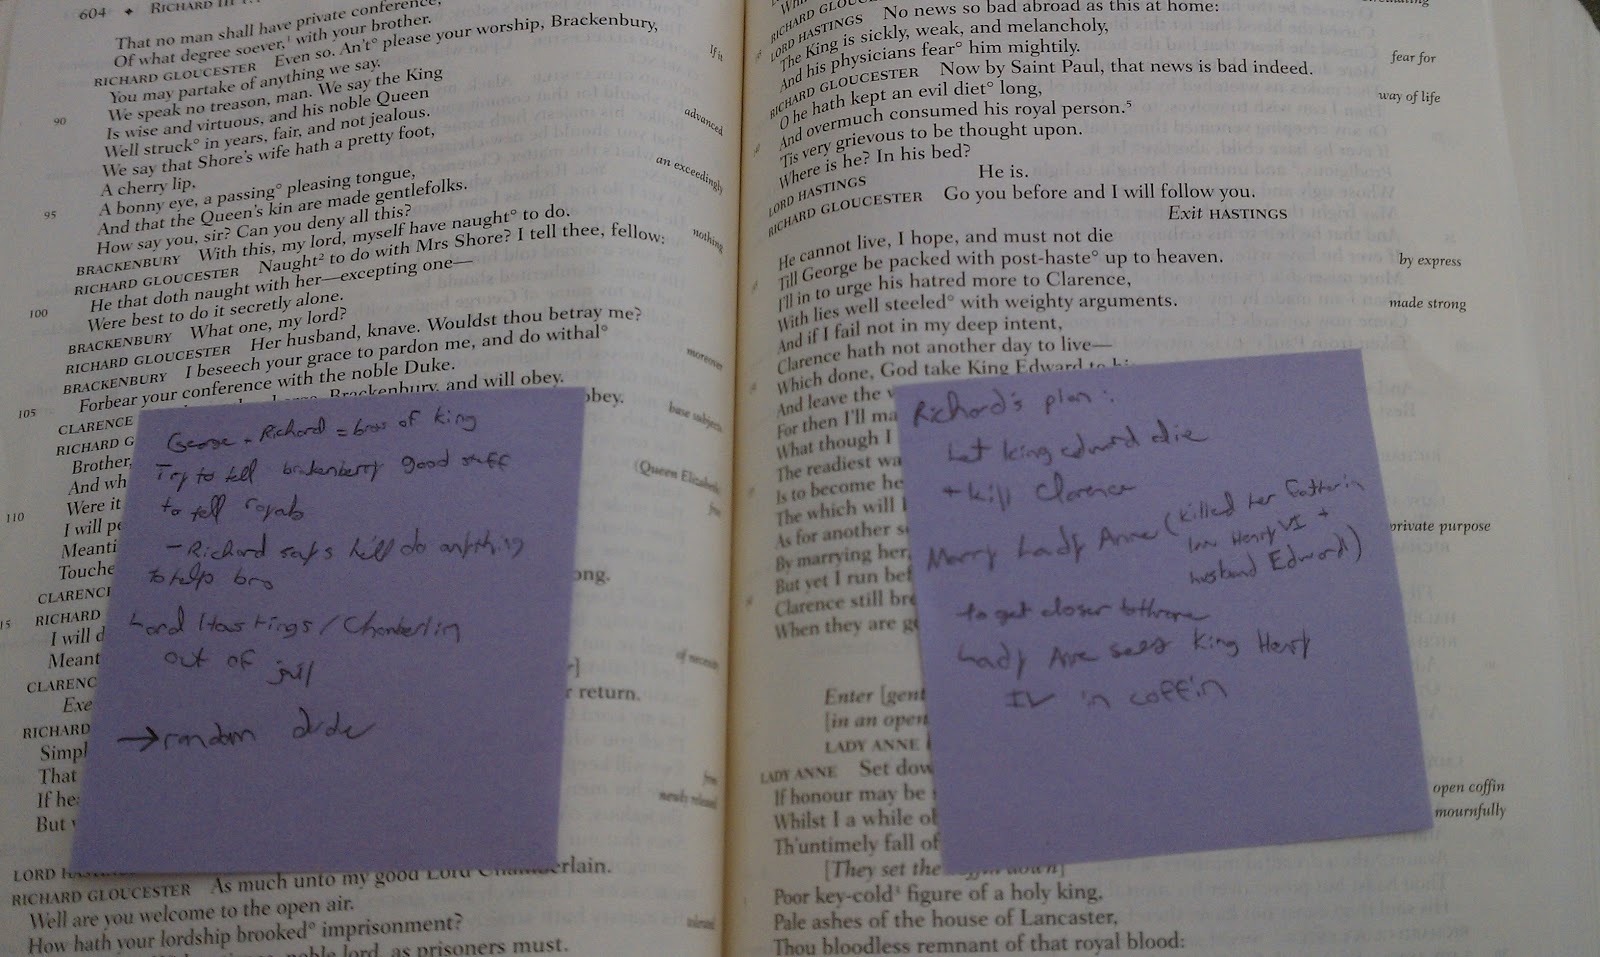 604 ✦ RICHARD III
That no man shall have private conference,
Of what degree soever,¹ with your brother.
RICHARD GLOUCESTER Even so. An't° please your worship, Brackenbury,
If it
You may partake of anything we say.
We speak no treason, man. We say the King
90 Is wise and virtuous, and his noble Queen
Well struck° in years, fair, and not jealous.
advanced
We say that Shore's wife hath a pretty foot,
A cherry lip,
A bonny eye, a passing° pleasing tongue,
an exceedingly
95 And that the Queen's kin are made gentlefolks.
How say you, sir? Can you deny all this?
BRACKENBURY With this, my lord, myself have naught° to do.
nothing
RICHARD GLOUCESTER Naught² to do with Mrs Shore? I tell thee, fellow:
He that doth naught with her—excepting one—
100 Were best to do it secretly alone.
BRACKENBURY What one, my lord?
RICHARD GLOUCESTER Her husband, knave. Wouldst thou betray me?
BRACKENBURY I beseech your grace to pardon me, and do withal°
moreover
105 Forbear your conference with the noble Duke.
CLARENCE Brackenbury, and will obey.
RICHARD G obey.
base subjects
Brother,
And wh
(Queen Elizabeth)
Were it
110 I will pe
Meanti
Touche
CLARENC ong.
15 RICHARD
I will d
Meant
of necessity
CLARENC
Exe r return.
RICHARD
Simpl
That
If he
newly released
But
LORD HAS
RICHARD GLOUCESTER As much unto my good Lord Chamberlain.
Well are you welcome to the open air.
How hath your lordship brooked° imprisonment?
noble lord, as prisoners must.
George + Richard = bros of king
Try to tell brakenberry good stuff
to tell royals
- Richard says he'll do anything
to help bro
Lord Hastings/Chamberlin
out of jail
→ random dude
RICHARD GLOUC
LORD HASTINGS No news so bad abroad as this at home:
The King is sickly, weak, and melancholy,
And his physicians fear° him mightily.
fear for
RICHARD GLOUCESTER Now by Saint Paul, that news is bad indeed.
O he hath kept an evil diet° long,
way of life
And overmuch consumed his royal person.⁵
'Tis very grievous to be thought upon.
Where is he? In his bed?
LORD HASTINGS He is.
RICHARD GLOUCESTER Go you before and I will follow you.
Exit HASTINGS
He cannot live, I hope, and must not die
Till George be packed with post-haste° up to heaven.
by express
I'll in to urge his hatred more to Clarence,
With lies well steeled° with weighty arguments.
made strong
And if I fail not in my deep intent,
Clarence hath not another day to live—
Which done, God take King Edward to hi
And leave the
For then I'll ma
What though I
The readiest wa
Is to become he
The which will
As for another s
private purpose
By marrying her,
But yet I run bef
Clarence still bre
When they are g
Enter [gent
[in an open
LADY ANNE
LADY ANNE Set dow
If honour may be
open coffin
Whilst I a while ob
mournfully
Th'untimely fall of
[They set the coffin down]
Poor key-cold figure of a holy king,
Pale ashes of the house of Lancaster,
Thou bloodless remnant of that royal blood:
Richard's plan:
Let king edward die
+ kill Clarence
Marry Lady Anne (killed her father in
law Henry VI +
husband Edward)
to get closer to throne
Lady Anne sees King Henry
IV in coffin